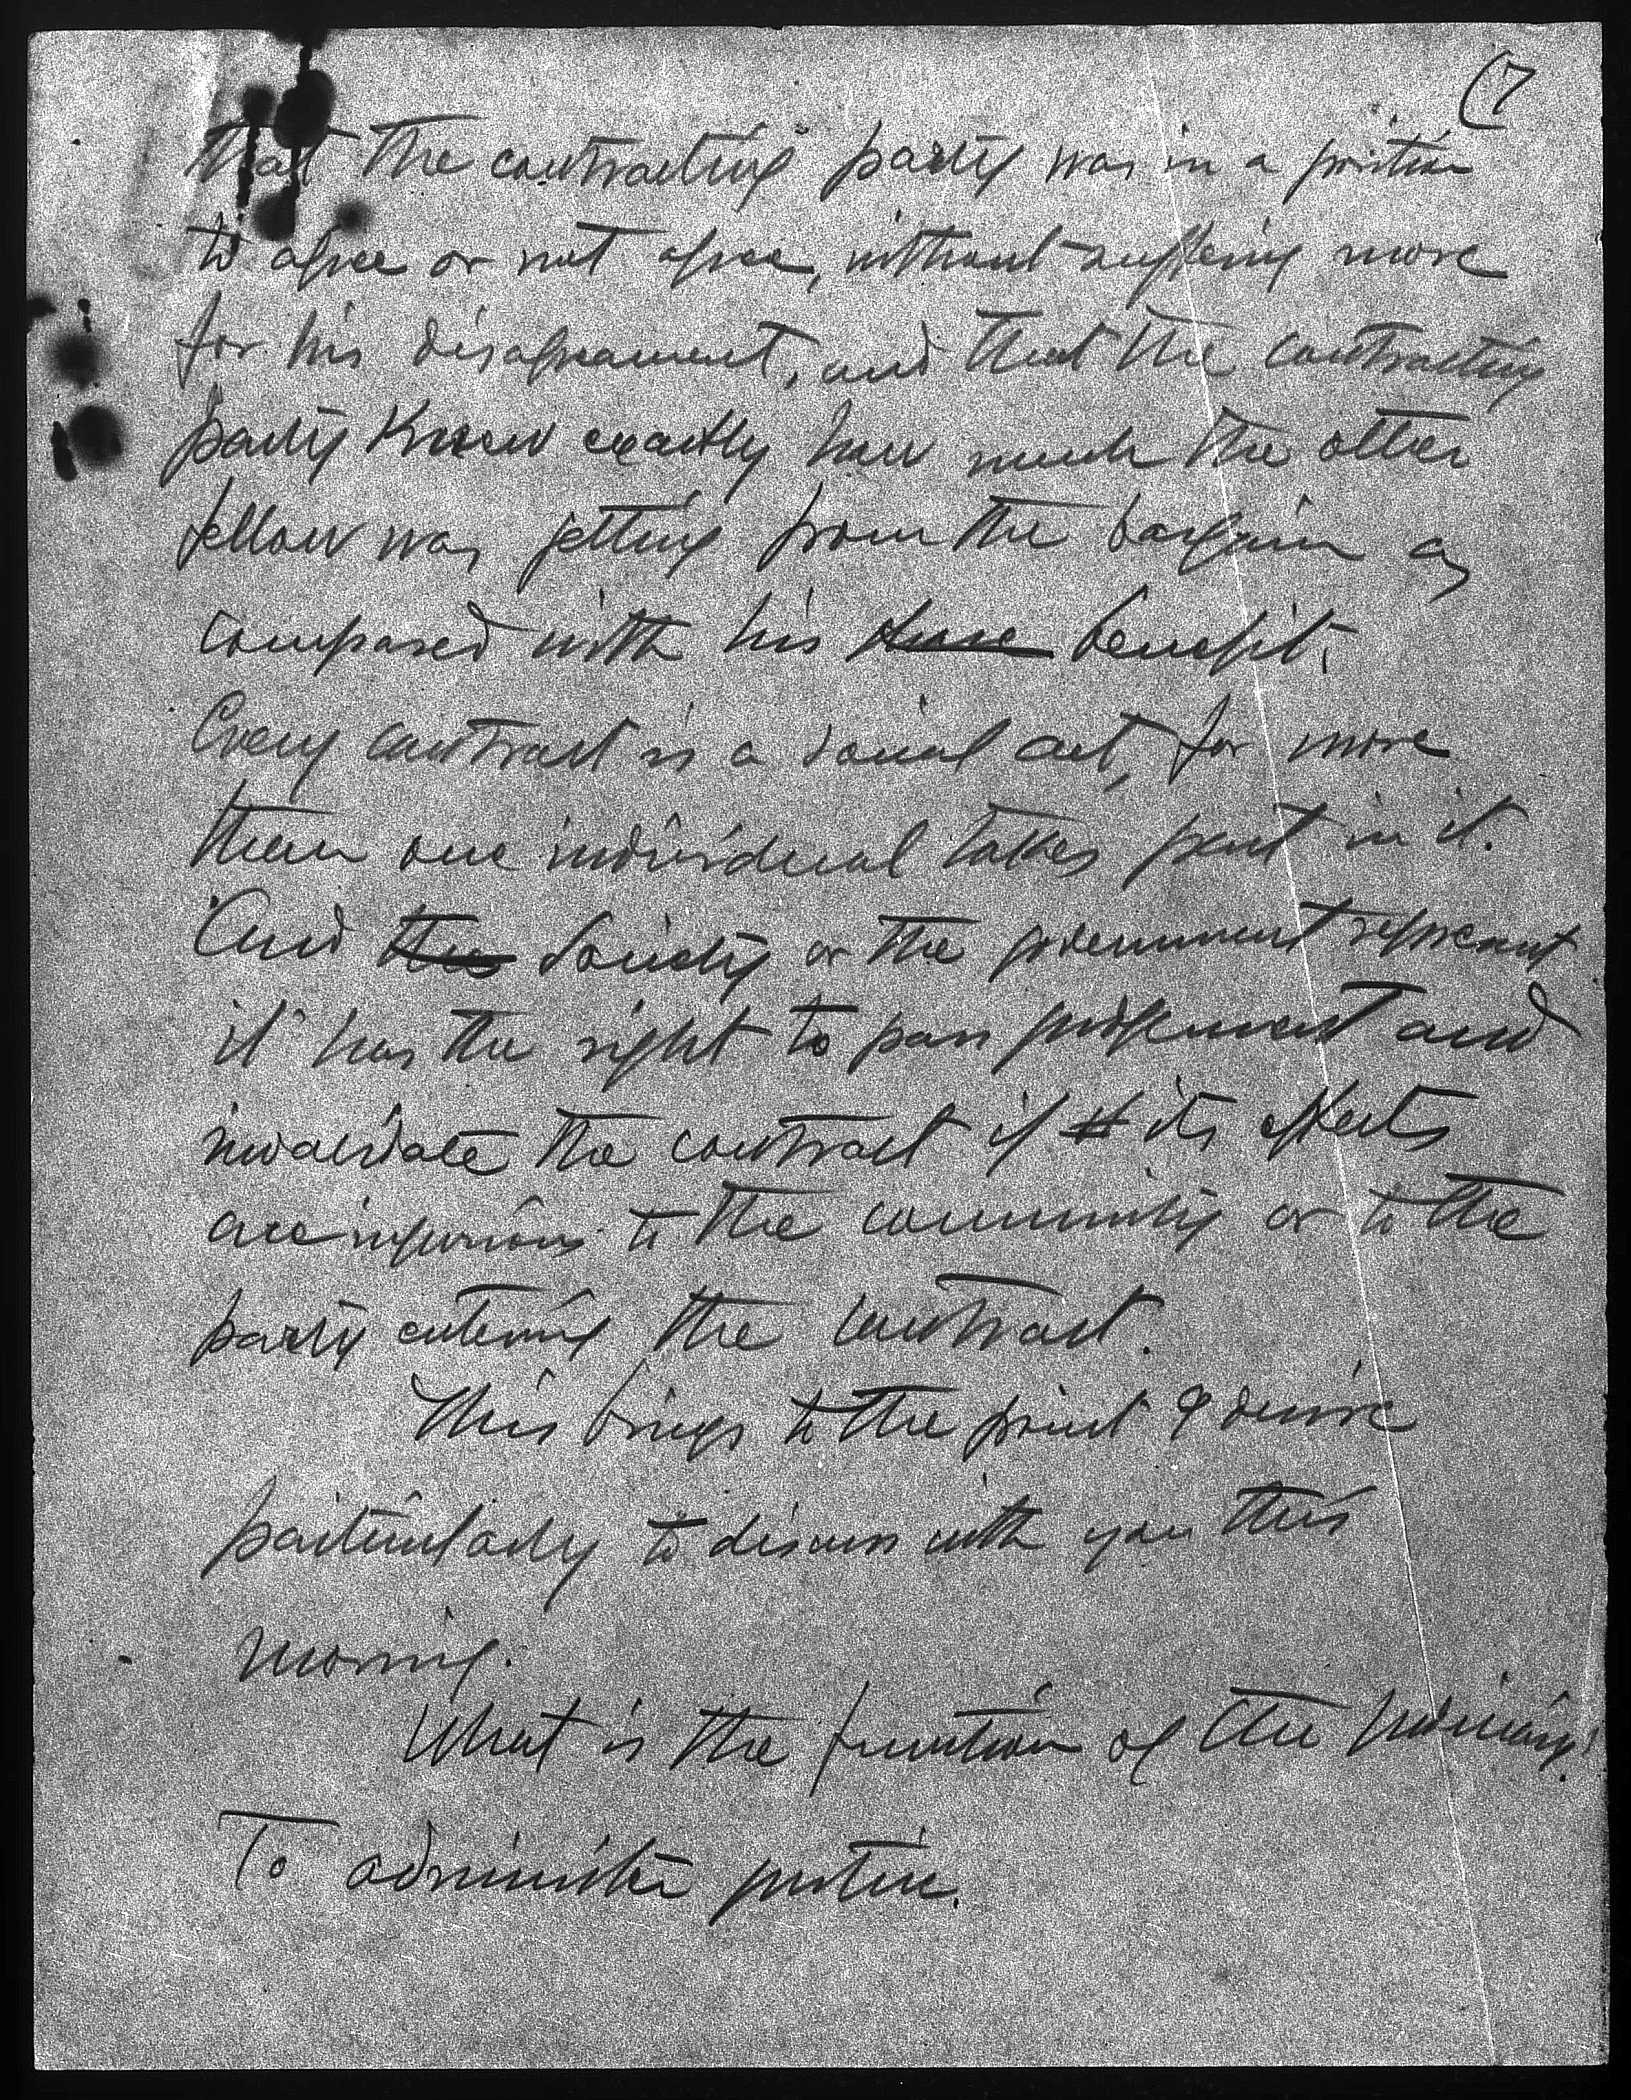 (7
that the contracting party was in a position
to agree or not agree, without suffering more
for his disagreement, and that the contracting
party knew exactly how much the other
fellow was getting from the bargain as
compared with his benefit.
Every contract is a social act, for more
than one individual takes part in it.
And the Society or the government represent
it has the right to pass judgement and
invalidate the contract if its effects
are injurious to the community or to the
party entering the contract.
This brings to the point I desire
particularly to discuss with you this
morning.
What is the function of the Judiciary?
To administer justice.